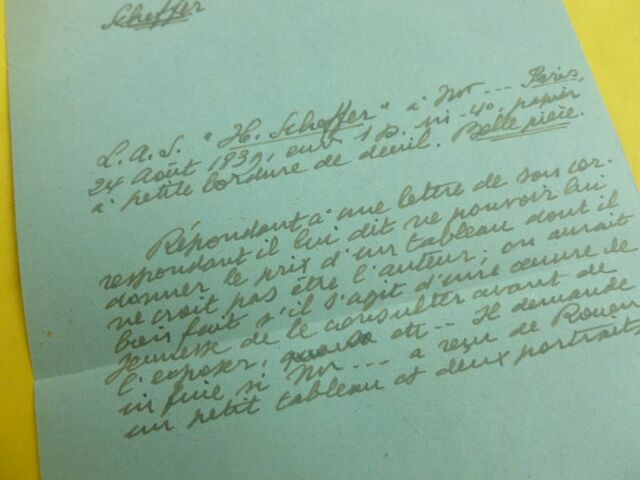 Scheffer
L. A. S. "H. Scheffer" à Mr --- Paris,
24 Août 1839, env 1 p. in-4°. papier
à petite bordure de deuil. Belle pièce.
Répondant à une lettre de son cor-
respondant il lui dit ne pouvoir lui
donner le prix d'un tableau dont il
ne croit pas être l'auteur; on aurait
bien fait s'il s'agit d'une œuvre de
jeunesse de le consulter avant de
l'exposer, etc -- Il demande
in fine si Mr --- a reçu de Rouen
un petit tableau et deux portraits